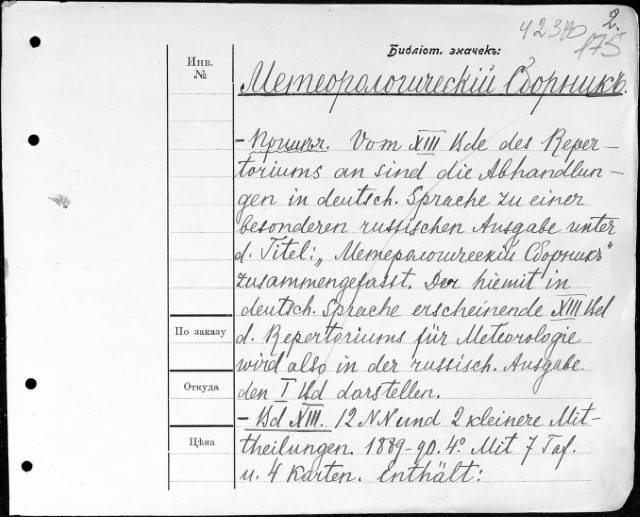 42370 2.
175
Библіот. значекъ:
Инв.
№
Метеорологическій Сборникъ.
— Примѣч. Vom XIII Bde des Reper-
toriums an sind die Abhandlun-
gen in deutsch. Sprache zu einer
besonderen russischen Ausgabe unter
d. Titel: „Метерологическій Сборникъ"
zusammengefasst. Der hiemit in
deutsch. Sprache erscheinende XIII Bd
По заказу
d. Repertoriums für Meteorologie
wird also in der russisch. Ausgabe
Откуда
den I Bd darstellen.
— Bd XIII. 12 NN und 2 kleinere Mit-
Цѣна
theilungen. 1889-90. 4°. Mit 7 Taf.
u. 4 Karten. Enthält: